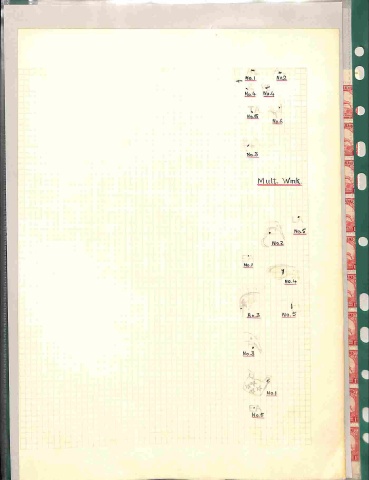 No.1 No.2
No.4 No.4
No.6 No.6
No.3
Mult. Wmk.
No.5
No.2
No.1
No.4
No.3 No.5
No.3
No.1
No.5